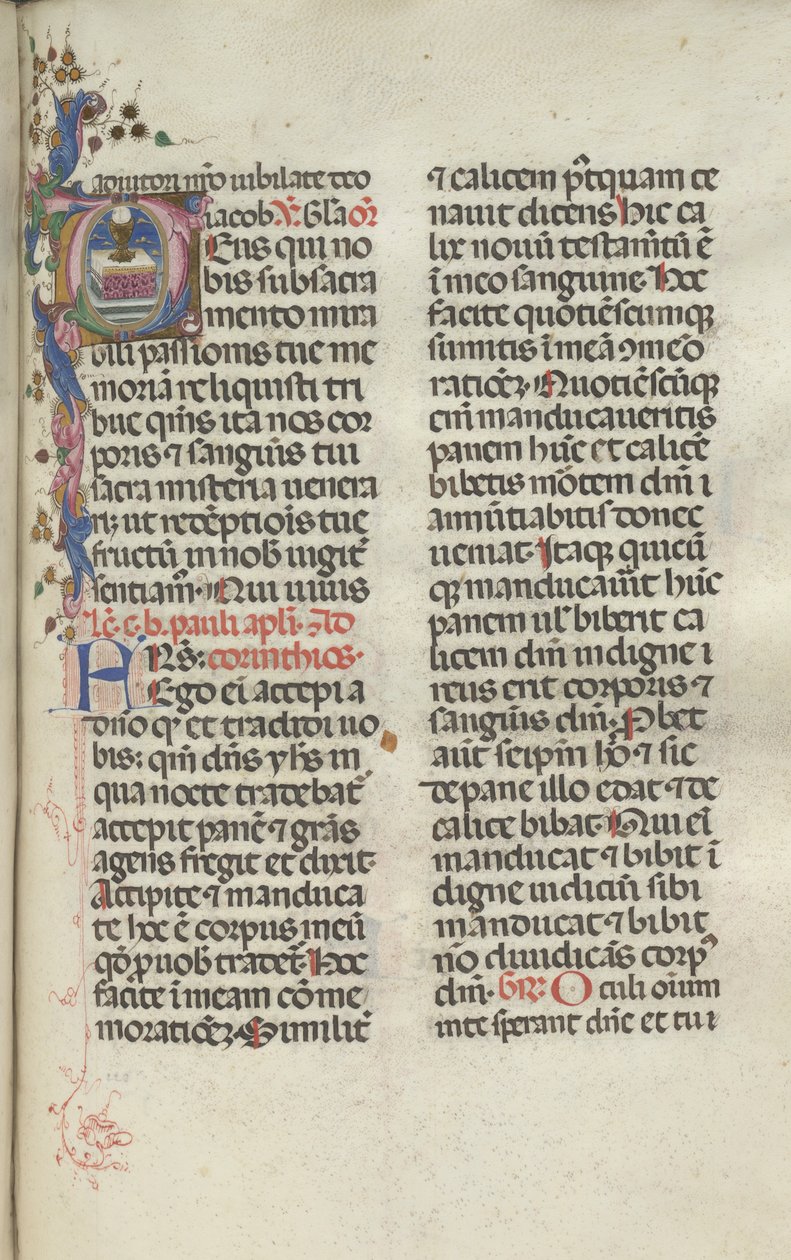 adiutori nr̄o iubilate deo
iacob. V̄. Gl̄a or̄
Deus qui no
bis sub sacra
mento mira
bili passionis tue me
moriā reliquisti tri
bue qm̄s ita nos cor
poris ⁊ sanguīs tui
sacra misteria uenera
rꝫ ut redēptiōis tue
fructū in nob̄ iugit̄
sentiam᷒. Qui uiuis
Lc̄. e. b. pauli apl̄i. Ad
FR̄S: corinthios.
Ego ei accepi a
dn̄o qḋ et tradidi uo
bis: qm̄ dn̄s yħs in
qua nocte tradebat̄
accepit panē ⁊ grās
agens fregit et dixit.
Accipite ⁊ manduca
te hoc ē corpus meū
qḋ ꝓ uob̄ tradet̄. Hoc
facite ī meam cōme
moratiōeꝫ. Similit̄
⁊ calicem p̄tquam ce
nauit dicens hic ca
lix nouū testam̄tū ē
ī meo sanguine. Hoc
facite quotiēscumqꝫ
sumitis ī meā ꝯmēo
ratiōeꝫ. Quotiēscūqꝫ
cm̄ manducaueritis
panem hūc et calicē
bibetis mōtem dn̄i
annūtiabitis donec
ueniat. Itaqꝫ quicū
qꝫ manducau̅it hūc
panem ul̄ biberit ca
licem dn̄i indigne
reus erit corporis ⁊
sanguīs dn̄i. Pbet
aūt seip̄m hō ⁊ sic
de pane illo edat ⁊ de
calice bibat. Qui ei
manducat ⁊ bibit ī
digne iudiciū sibi
manducat ⁊ bibit
nō diiudicās corpꝰ
dn̄i. Gr̄. Oculi oīum
in te sperant dn̄e et tu